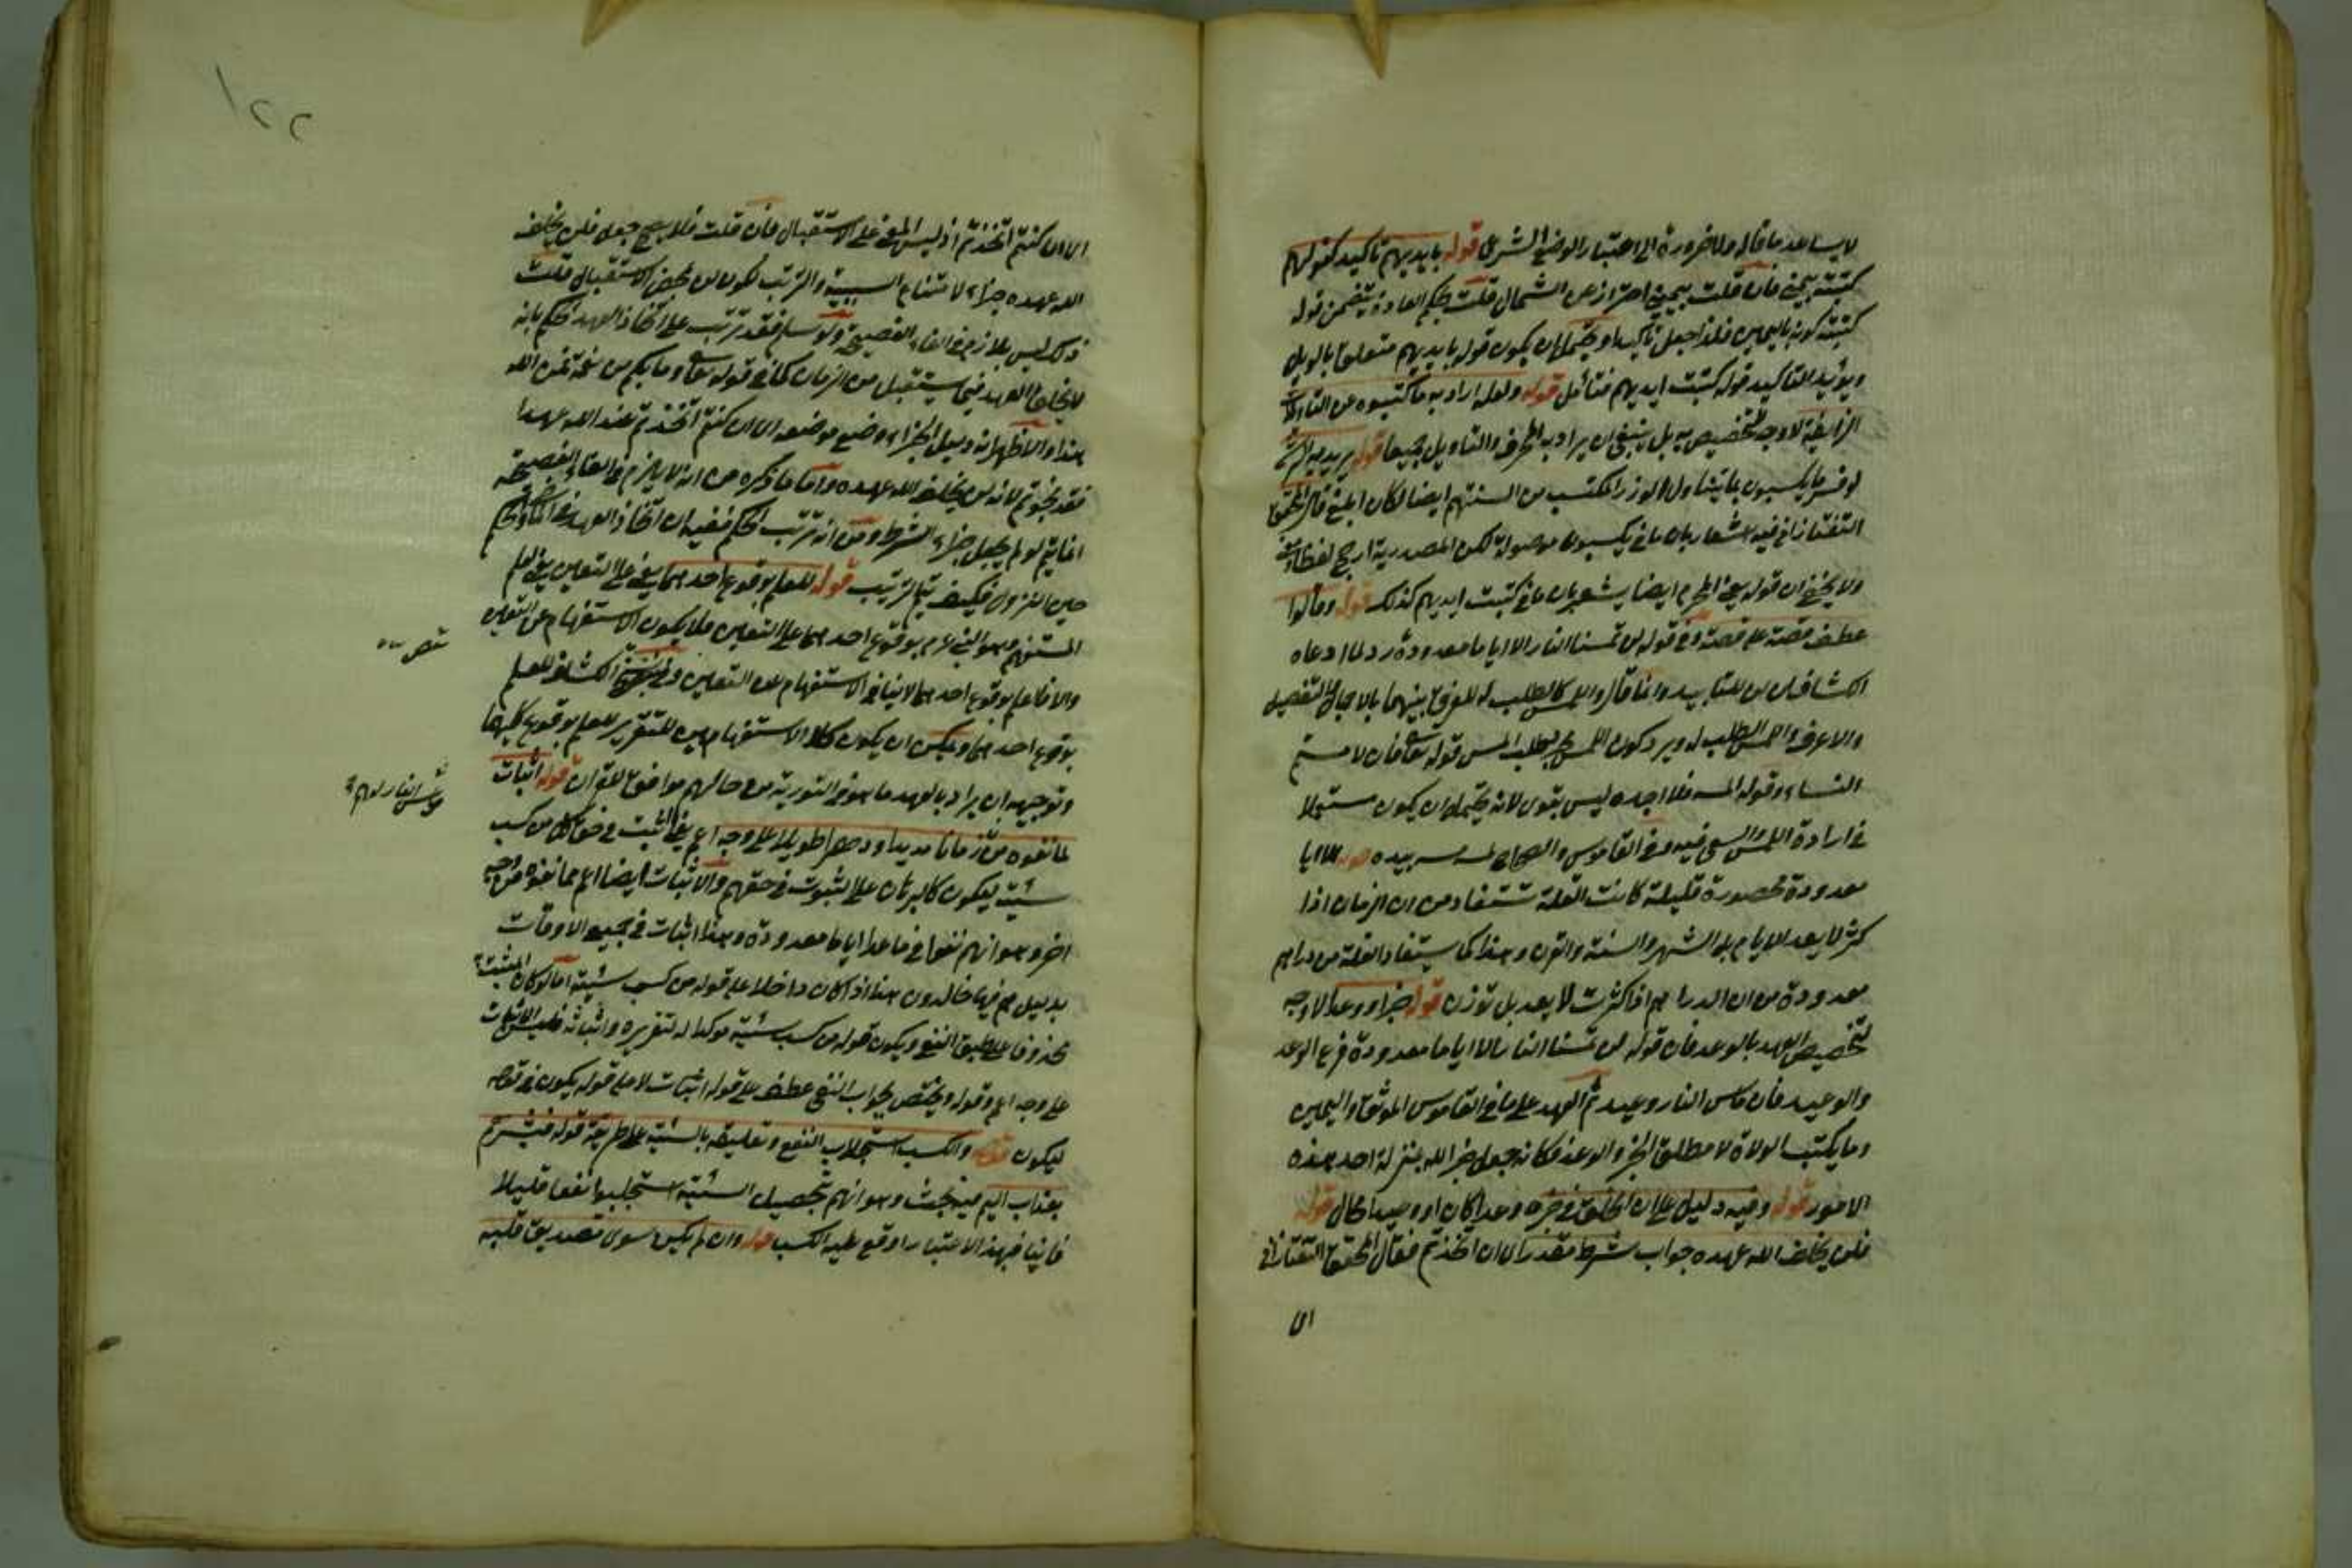 لا يساعد ما قاله ولا ضرورة الى اعتبار الوضع الشرعى قوله بايديهم تاكيد كقولهم
كتبته بيمينى فان قلت بيمينى احتراز عن الشمال قلت بحكم العادة يتضمن قوله
كتبته كونه باليمين فلذا جعل تاكيدا ويحتمل ان يكون قوله بايديهم متعلقا بالويل
ويؤيد التاكيد قوله كتبت ايديهم فتأمل قوله ولعله اراد به ما كتبوه من التاويلات
الزايغة لا وجه لتخصيص به بل ينبغى ان يراد به المحرف والتاويل جميعا قوله يريد به الرشى
لو فسر ما يكسبون بما يتناول الوزر المكتسب من السنتهم ايضا لكان ابلغ قال المحقق
التفتازانى فيه اشعار بان ما فى يكسبون موصولة لكن المصدرية ارجح لفظا ومعنى
ولا يخفى ان قوله يعنى المحرف ايضا يشعر بان ما فى كتبت ايديهم كذلك قوله وقالوا
عطف قصة على قصة وفى قوله لن تمسنا النار الا اياما معدودة رد لما ادعاه
الكشاف ان لن للتابيد وانما قال واللمس كالطلب له للفرق بينهما بالاجمال والتفصيل
والاعرف واللمس الطلب له ويرد كون اللمس لطلب المس قوله تعا فان لامستم
النساء وقوله المسه فلا اجده ليس بقوى لانه يحتمل ان يكون مستعملا
فى ارادة اللمس والسعى فيه وفى القاموس والصحاح لمسه مسه بيده قوله الا اياما
معدودة محصورة قليلة كانت القلة تستفاد من ان الزمان اذا
كثر لا يعد بالايام بل بالشهر والسنة والقرن وهذا كما يستفاد القلة من دراهم
معدودة من ان الدراهم اذا كثرت لا يعد بل توزن قوله خبرا ووعدا لا وجه
لتخصيص العهد بالوعد فان قوله لن تمسنا النار الا اياما معدودة فرع الوعد
والوعيد فان مس النار وعيد ثم العهد على ما فى القاموس الموثق واليمين
وما يكتب الولاة لا مطلق الخبر والوعد فكانه جعل خبر الله بمنزلة احد هذه
الامور قوله وفيه دليل على ان الخلف فى خبره وعدا كان او وعيدا محال قوله
فلن يخلف الله عهده جواب شرط مقدر اى ان اتخذتم فقال المحقق التفتازانى
اى
١٢٢
اى ان كنتم اتخذتم اذ ليس المعنى على الاستقبال فان قلت فلا يصح جعل فلن يخلف
الله عهده جزاء لامتناع السببية والترتب لكون لن لمحض الاستقبال قلت
ذلك ليس بلازم فى الفاء الفصيحة ولو سلم فقد ترتب على اتخاذ العهد الحكم بانه
لا يخلف العهد فيما يستقبل من الزمان كما فى قوله تعا وما بكم من نعمة فمن الله
هذا والاظهر انه دليل الجزاء وضع موضعه اى ان كنتم اتخذتم عند الله عهدا
فقد نجوتم لانه لن يخلف الله عهده واما ما ذكره من انه لا يلزم فى الفاء الفصيحة
انما يتم لو لم يجعل جزاء الشرط ومن انه ترتب الحكم ففيه ان اتخاذ العهد والحكم
حين النزول فكيف يتم الترتيب قوله للعلم بوقوع احدهما يعنى على التعيين يعنى لعلم
المستفهم وهو النبى عم بوقوع احدهما على التعيين فلا يكون الاستفهام عن التعيين
والا فالعلم بوقوع احدهما لا ينافى الاستفهام عن التعيين وفى الكشاف للعلم
بوقوع احدهما ويمكن ان يكون كلا الاستفهامين للتقرير للعلم بوقوع كليهما
وتوجيهه ان يراد بالعهد ما هو فى التورية من حالهم موافقا للقران قوله اثبات
لما نفوه من زمانا مديدا ودهرا طويلا على وجه اعم يعنى اثبت فى حق كل من كسب
سيئة ليكون كالبرهان على الثبوت فى حقهم والاثبات ايضا اعم مما نفوه من وجه
اخر وهو انهم نفوا فى ما عدا اياما معدودة وهذا اثبات فى جميع الاوقات
بدليل هم فيها خالدون هذا اذا كان داخلا على قوله من كسب سيئة اما لو كان المثبت
محذوفا على طبق النفى ويكون قوله من كسب سيئة مؤكدا له لتقريره واثباته فليس الاثبات
على وجه اعم وقوله ويختص بجواب النفى عطف على قوله اثبات لا على قوله يكون فى قوله
ليكون قوله والكسب استجلاب النفع وتعليقه بالسيئة على طريقة قوله فبشرهم
بعذاب اليم فيه بحث وهو انهم بتحصيل السيئة استجلبوا نفعا قليلا
فانيا فبهذا الاعتبار اوقع عليه الكسب قوله وان لم يكن سوى تصديق قلبه